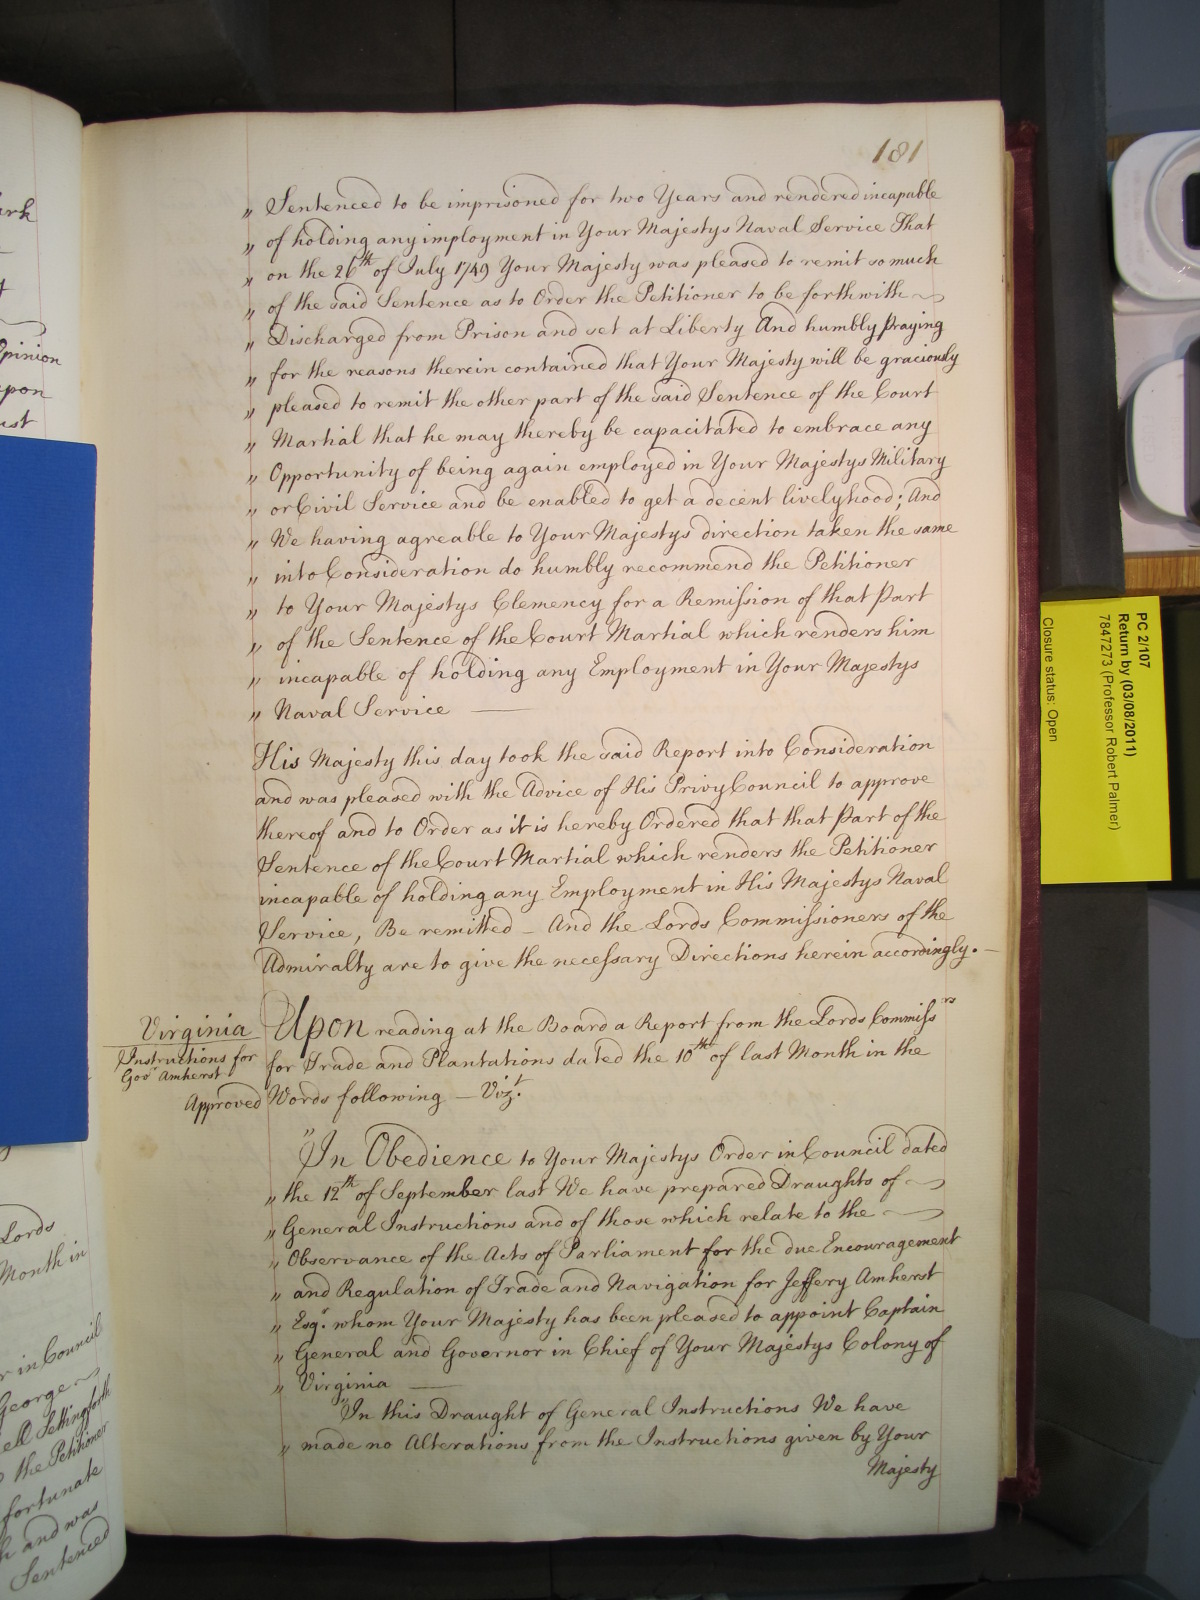 181
„ Sentenced to be imprisoned for two Years and rendered incapable
„ of holding any imployment in Your Majestys Naval Service That
„ on the 26th of July 1749 Your Majesty was pleased to remit so much
„ of the said Sentence as to Order the Petitioner to be forthwith
„ Discharged from Prison and set at Liberty And humbly praying
„ for the reasons therein contained that Your Majesty will be graciously
„ pleased to remit the other part of the said Sentence of the Court
„ Martial that he may thereby be capacitated to embrace any
„ Opportunity of being again employed in Your Majestys Military
„ or Civil Service and be enabled to get a decent livelyhood; And
„ We having agreable to Your Majestys direction taken the same
„ into Consideration do humbly recommend the Petitioner
„ to Your Majestys Clemency for a Remission of that Part
„ of the Sentence of the Court Martial which renders him
„ incapable of holding any Employment in Your Majestys
„ Naval Service —
His Majesty this day took the said Report into Consideration
and was pleased with the Advice of His Privy Council to approve
thereof and to Order as it is hereby Ordered that that Part of the
Sentence of the Court Martial which renders the Petitioner
incapable of holding any Employment in His Majestys Naval
Service, Be remitted – And the Lords Commissioners of the
Admiralty are to give the necessary Directions herein accordingly. –
Virginia
Instructions for
Govr Amherst
Approved
Upon reading at the Board a Report from the Lords Commissrs
for Trade and Plantations dated the 10th of last Month in the
Words following — Vizt.
"In Obedience to Your Majestys Order in Council dated
„ the 12th of September last We have prepared Draughts of
„ General Instructions and of those which relate to the
„ Observance of the Acts of Parliament for the due Encouragement
„ and Regulation of Trade and Navigation for Jeffery Amherst
„ Esqr. whom Your Majesty has been pleased to appoint Captain
„ General and Governor in Chief of Your Majestys Colony of
„ Virginia —
"In this Draught of General Instructions We have
„ made no Alterations from the Instructions given by Your
Majesty
PC 2/107
Return by (03/08/2011)
7847273 (Professor Robert Palmer)
Closure status: Open
Opinion
upon
Lords
Month in
r in Council
George
ell Setting forth
the Petitioner
fortunate
and was
Sentenced